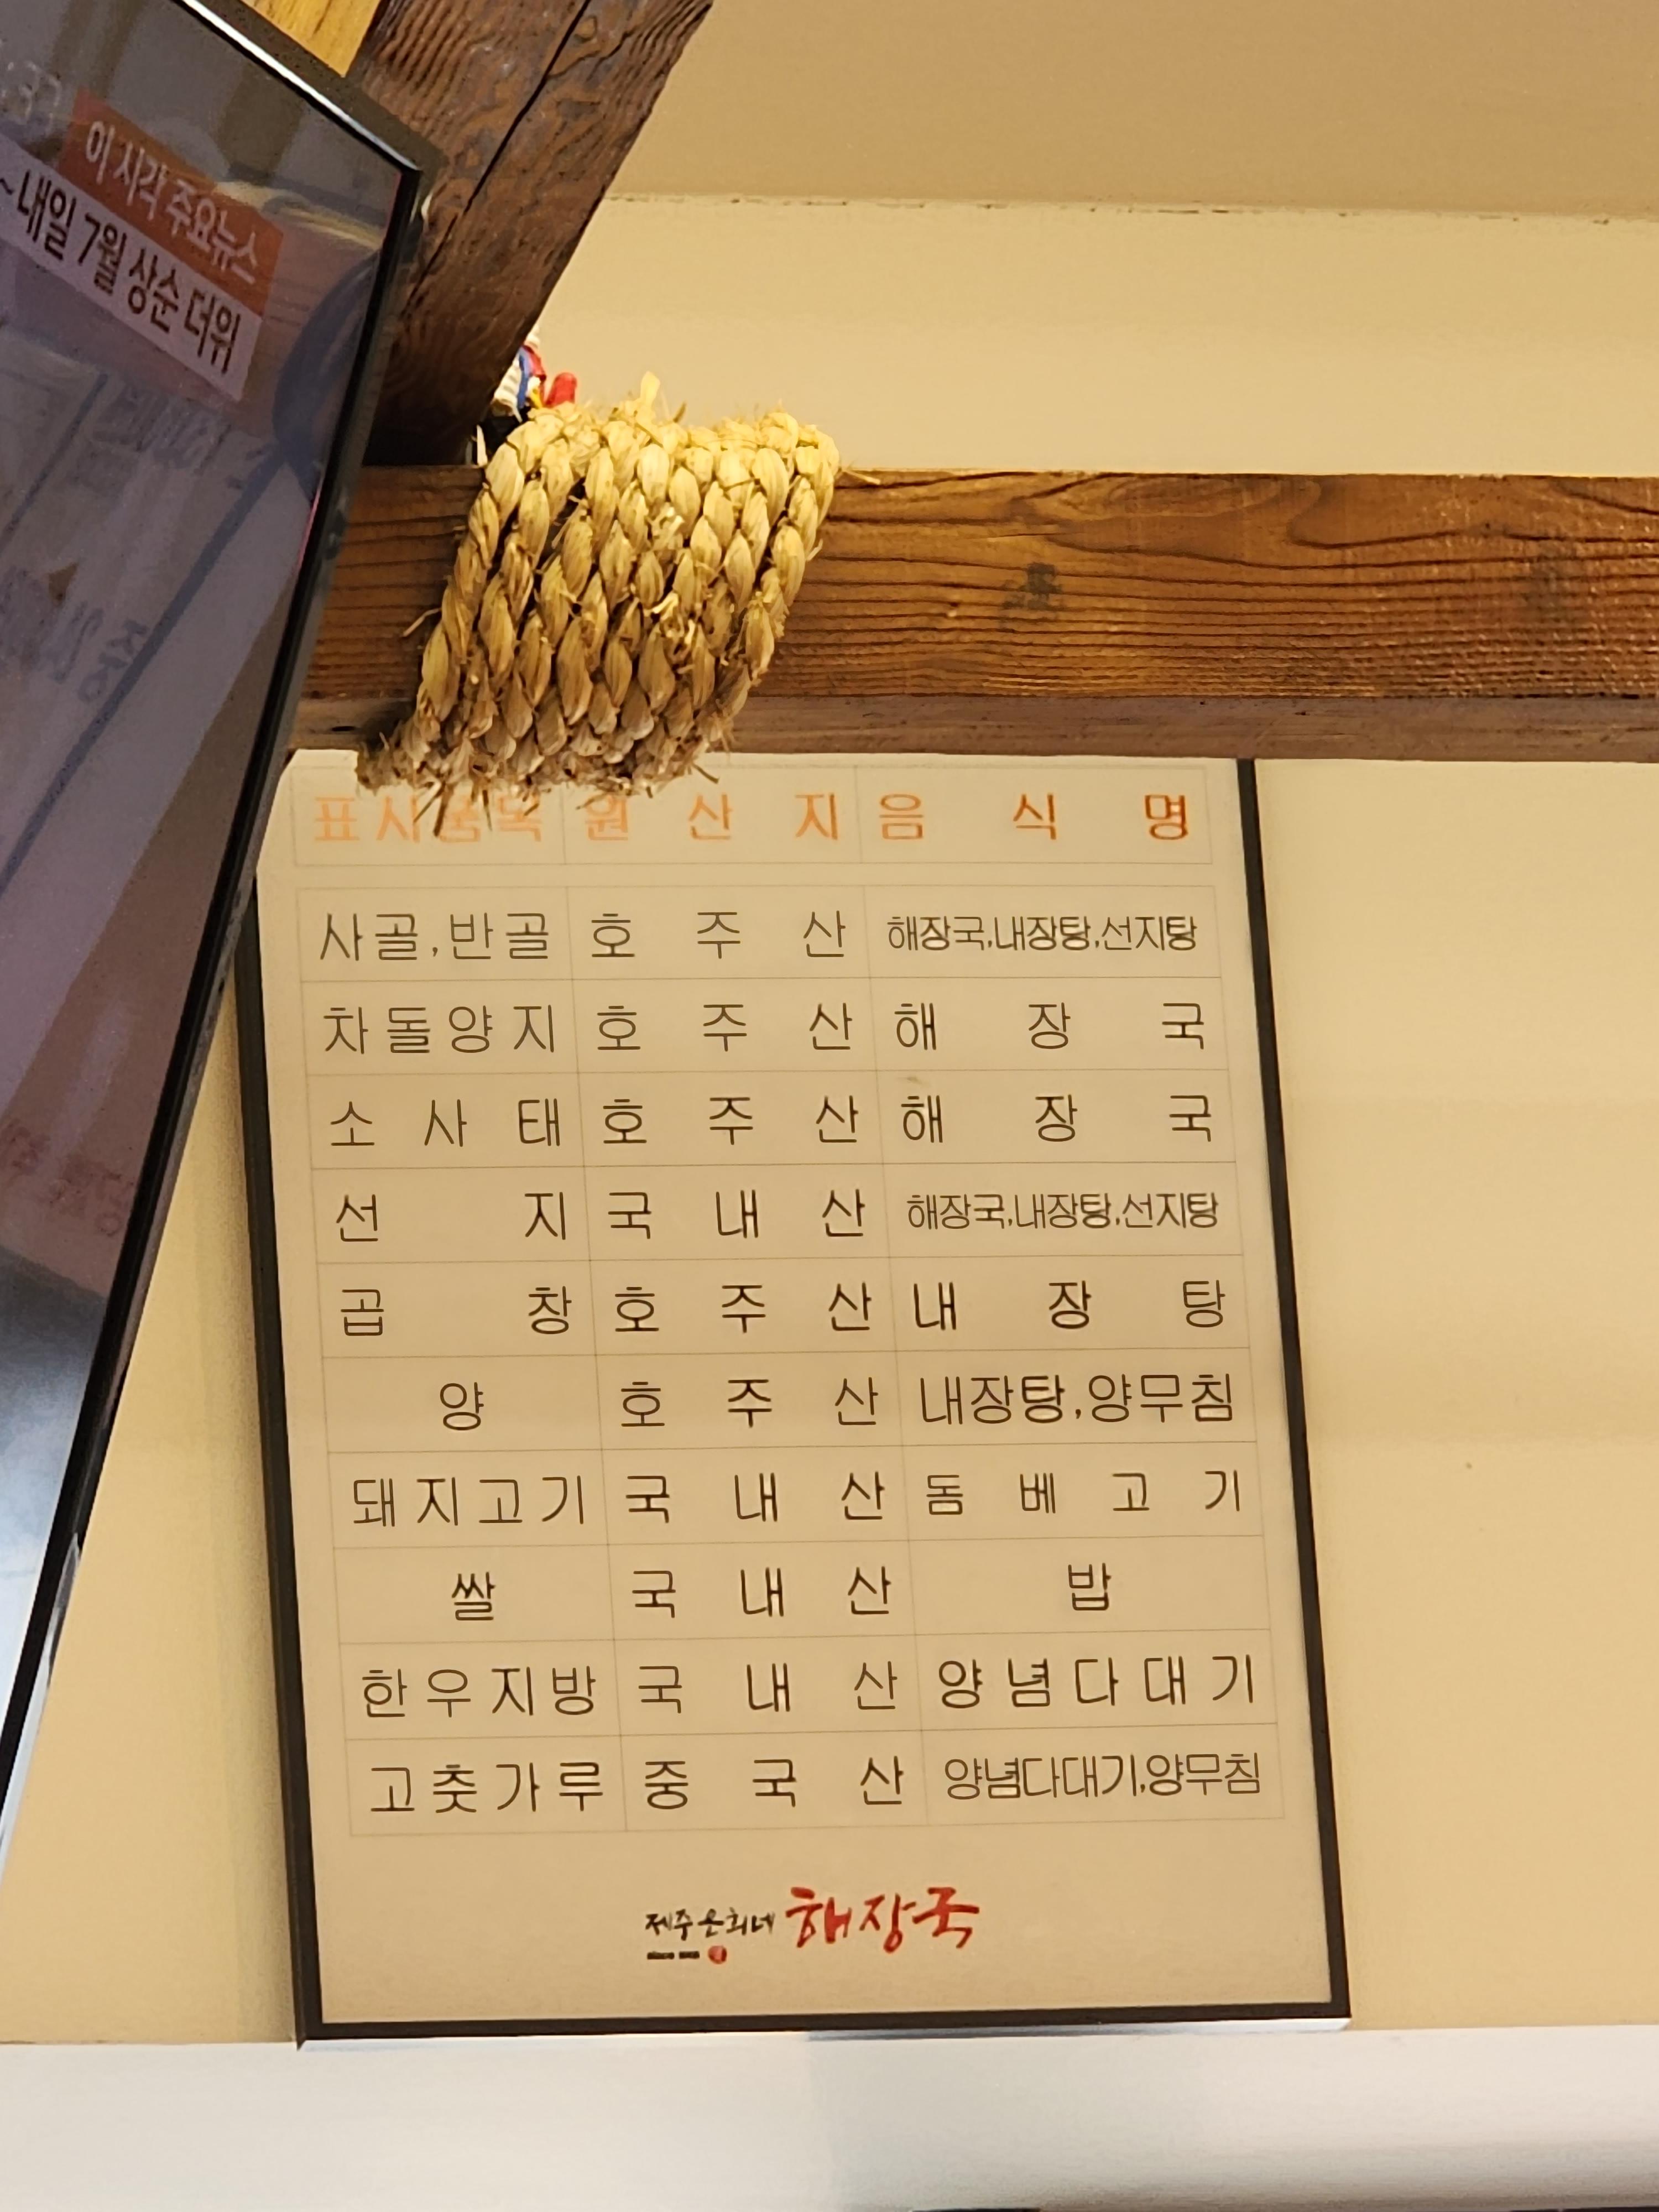 이 시각 주요뉴스
~내일 7월 상순 더위
표시품목 원산지 음식명
사골,반골 호주산 해장국,내장탕,선지탕
차돌양지 호주산 해장국
소사태 호주산 해장국
선지 국내산 해장국,내장탕,선지탕
곱창 호주산 내장탕
양 호주산 내장탕,양무침
돼지고기 국내산 돔베고기
쌀 국내산 밥
한우지방 국내산 양념다대기
고춧가루 중국산 양념다대기,양무침
제주은희네 해장국
since